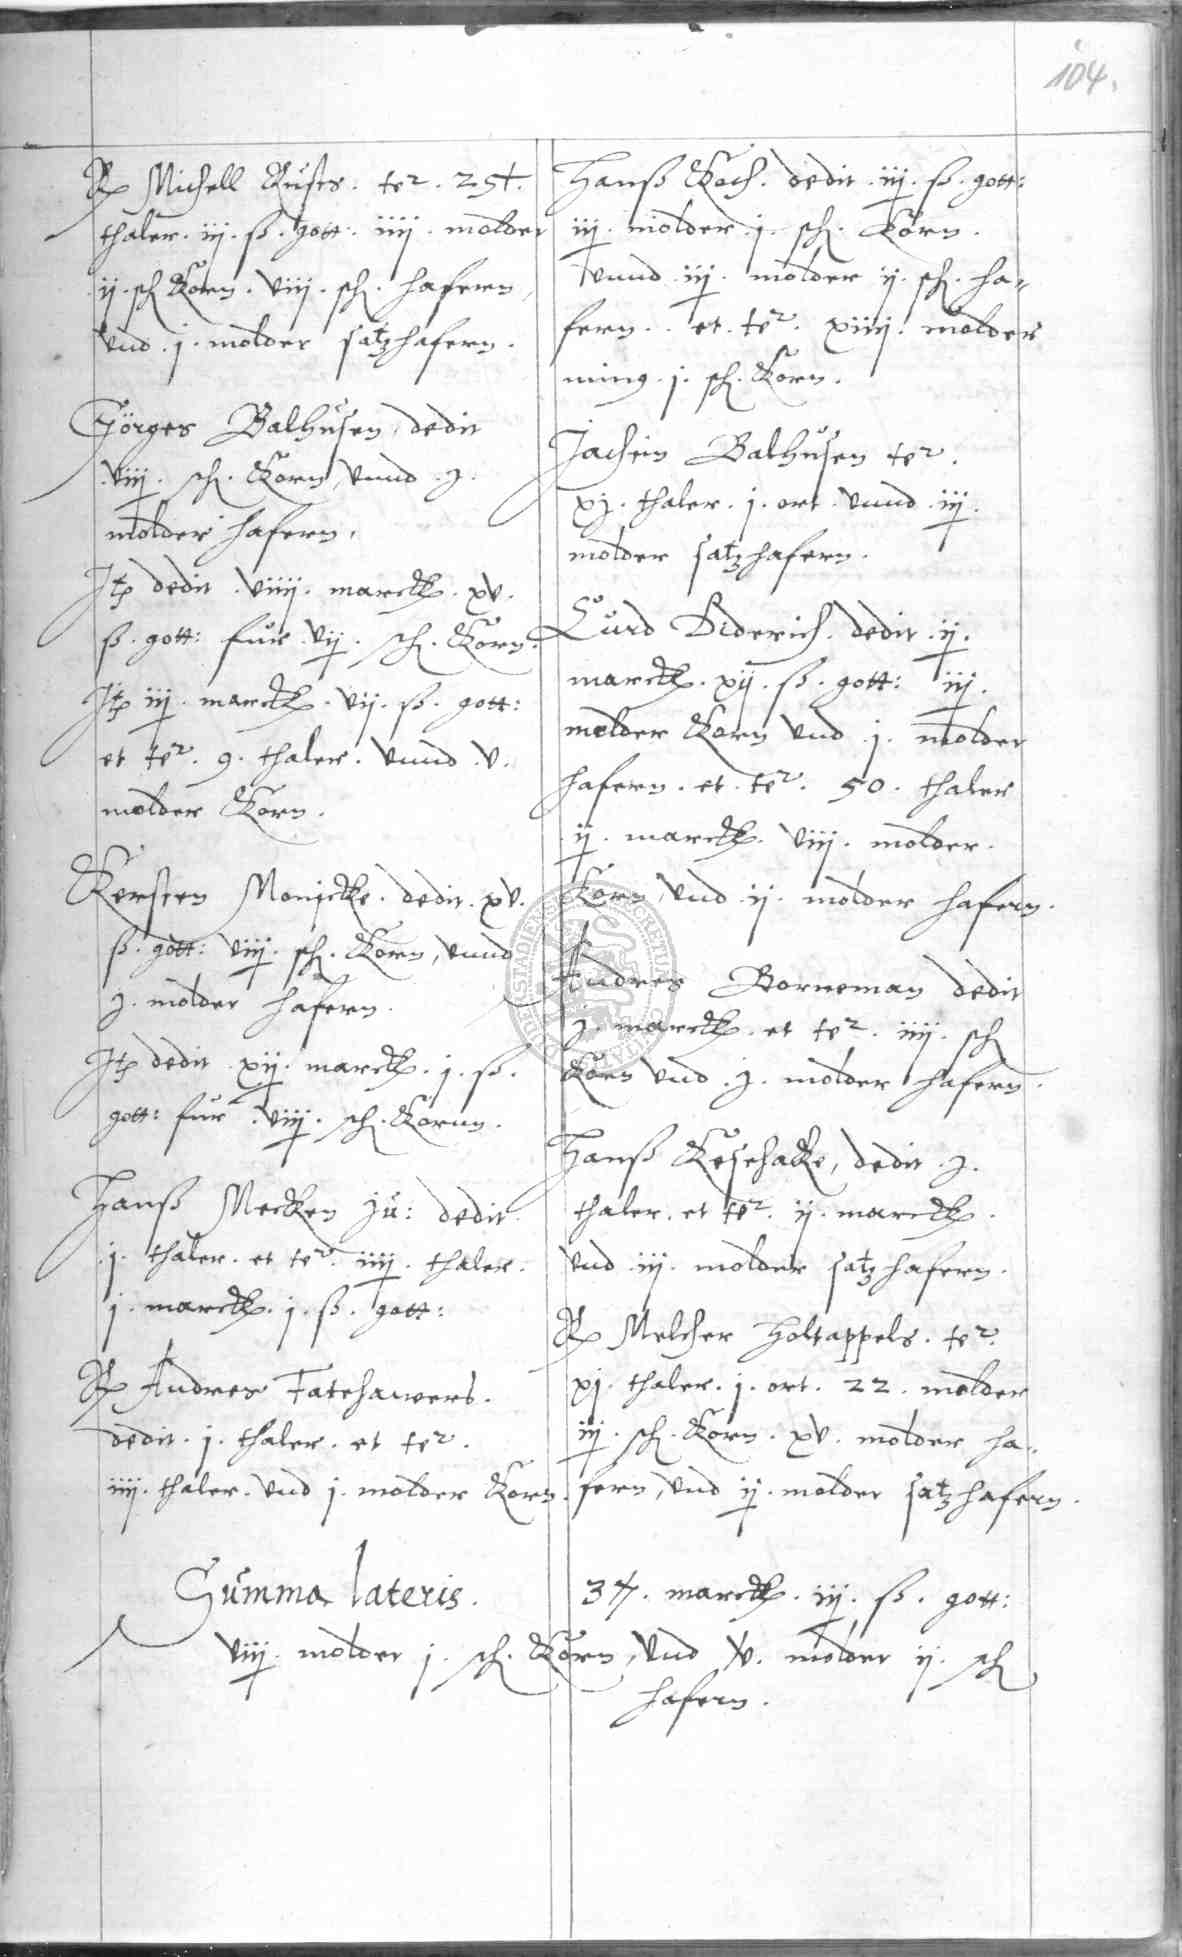 104.
R Michell Rusts. te². 25½.
thaler. iij. ß. gott: iiij. molder
ij. sch Korn. viij. sch. hafern,
vnd. j. molder satzhafern.
Görges Balhusen, dedit
viij. sch. Korn, vnnd. j.
molder hafern.
Itē dedit viiij. marck. xv.
ß. gott: fur vij. sch. Korn.
Itē iij. marck. vij. ß. gott:
et te². 9. thaler. vnnd v.
molder Korn.
Kersten Monicke. dedit. xv.
ß. gott: viij. sch. Korn, vnnd
j. molder hafern.
Itē dedit xij. marck. j. ß.
gott: fur viij. sch. Kornn.
Hanß Mecken Ju: dedit
j. thaler. et te². iiij. thaler.
j. marck. j. ß. gott:
R Andres Fatehawers.
dedit. j. thaler. et te².
iiij. thaler. vnd j. molder Korn.
Hanß Koch. dedit. iij. ß. gott:
iij. molder. j. sch. Korn.
vnnd iij. molder ij. sch. ha-
fern. et. te². xiiij. molder
min9. j. sch. Korn.
Jachim Balhusen te².
xj. thaler. j. ort. vnnd iij.
molder satzhafern.
Curd Diderich. dedit ij.
marck. xij. ß. gott: iij.
molder Korn vnd j. molder
hafern. et. te². 50. thaler
ij. marck. viij. molder.
Korn, vnd ij. molder hafern.
Andres Borneman dedit
j. marck. et te². iiij. sch
Korn vnd. j. molder hafern.
Hanß Kesehake, dedit j.
thaler. et te². ij. marck.
vnd iij. molder satzhafern.
R Melcher Holtappels. te².
xj. thaler. j. ort. 22. molder
iij. sch. Korn. xv. molder ha-
fern, vnd ij. molder satzhafern.
Summa lateris. 37. marck. iij. ß. gott:
viij. molder j. sch. Korn, vnd v. molder ij. sch
hafern.